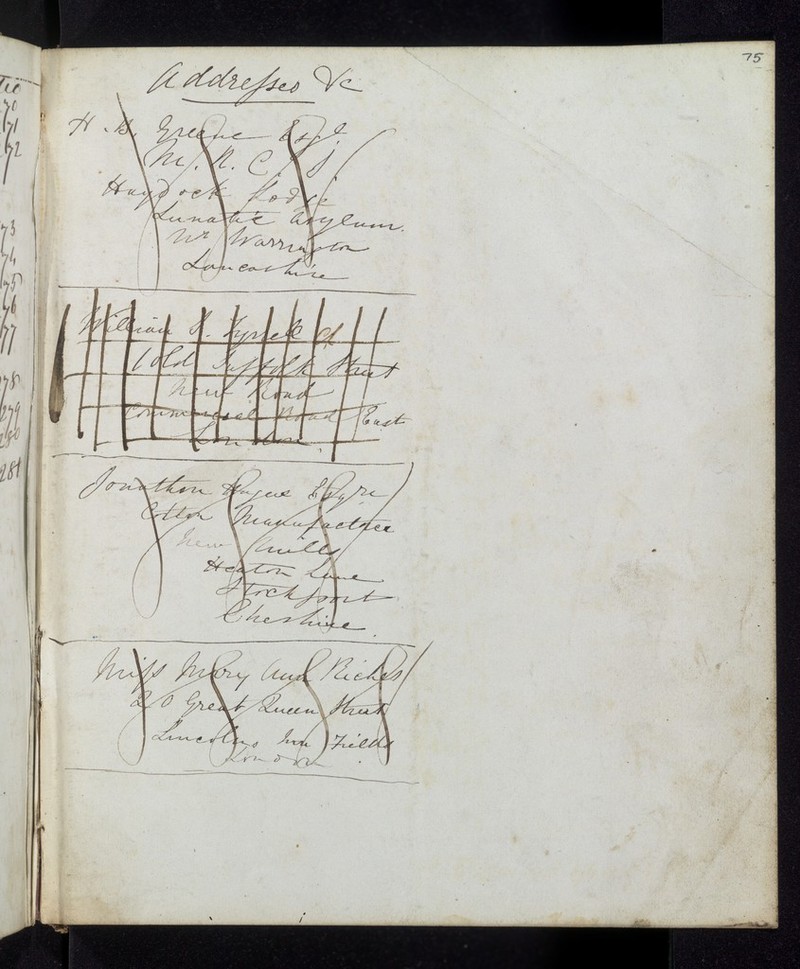 75
Addresses &c
H. B. Greene Esqr.
M. R. C. S
Haydock Lodge
Lunatic Asylum.
Nr Warrington
Lancashire
William H. Tyrrell
1 Old Suffolk Street
New Road
Commercial Road East
London.
Jonathon Esqre
Cotton Manufacturer
New Mills
Heaton Lane
Stockport
Cheshire.
Miss Mary Ann Riches
20 Great Queen Street
Lincolns Inn Fields
London
70
71
72
73
74
75
76
77
278
279
280
281